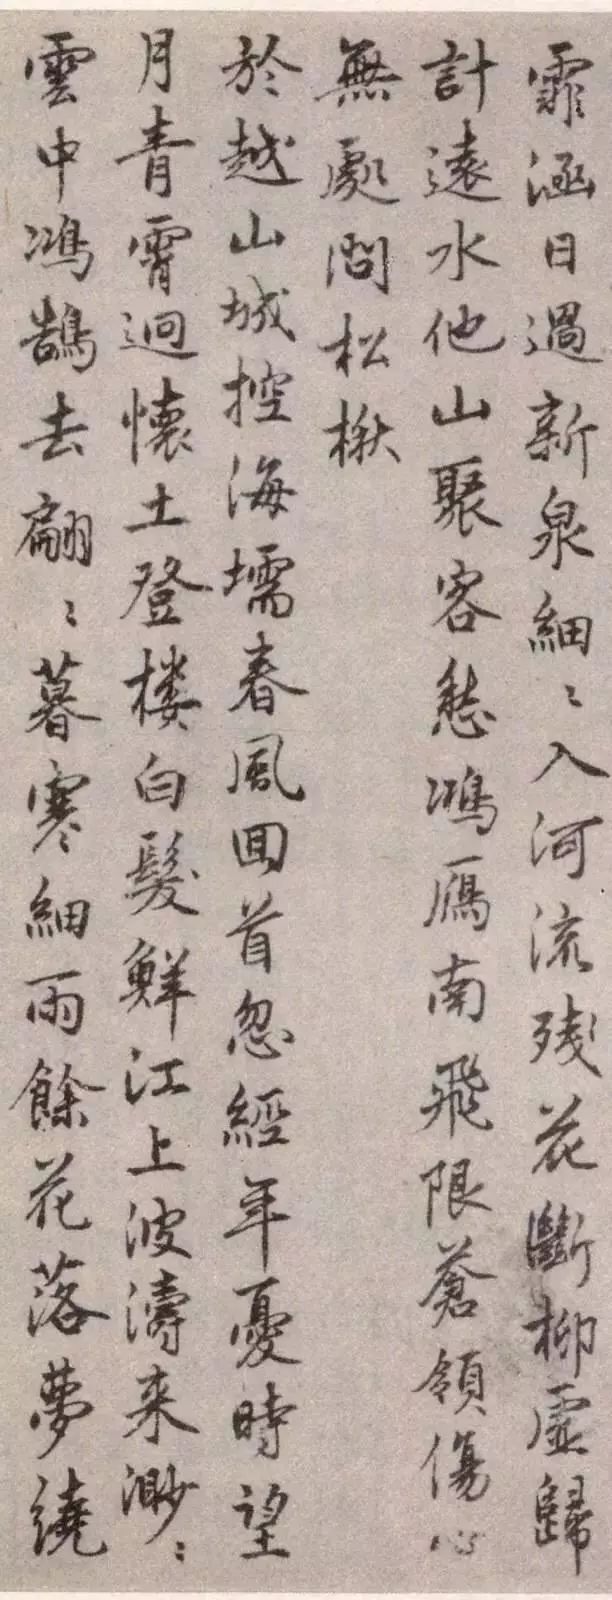 霏涵日過新泉細〻入河流殘花斷柳虛歸
計遠水他山聚客愁鴻雁南飛限蒼領傷心
無處問松楸
於越山城控海壖春風回首忽經年憂時望
月青霄迥懷土登樓白髮鮮江上波濤来渺〻
雲中鴻鵠去翩〻暮寒細雨餘花落夢繞